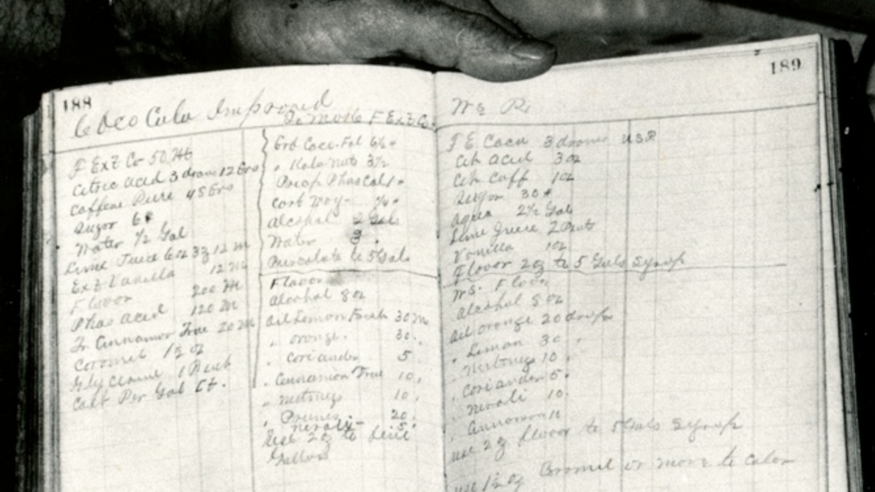 188
Coco Cola Improved
F Ext Co 50 M
Citric Acid 3 dram 12 Grs
Caffeine Pure 45 Grs
Sugar 6#
Water 1/2 Gal
Lime Juice 6oz 3z 12 M
Ext Vanilla 12 M
Flavor 200 M
Phos Acid 120 M
Tr Cinnamon True 20 M
Coromel 1 oz
Glycerine
Cost Per Gal
To Make F Ext Co
Grd Coco
" Kola Nuts
Alcohol 2 Gals
Water 3 "
Percolate to 5 Gals
Flavor
Alcohol 8 oz
Oil Lemon 30 M
" Orange 30 "
" Coriander 5
" Cinnamon True 10 "
" Nutmeg 10 "
20 "
" Neroli 5 "
Use 2 oz to
Gallon
189
F E Coca 3 drams USP
Cit Acid 3 oz
Cit Caff 1 oz
Sugar 30 #
Aqua 2 1/2 Gal
Lime Juice 2 Pints
Vanilla 1 oz
Flavor 2 oz to 5 Gals Syrup
Flavor
Alcohol 8 oz
Oil Orange 20 drops
" Lemon 30 "
" Nutmeg 10 "
" Coriander 5 "
" Neroli 10
" Cinnamon 10
use 2 oz flavor to 5 Gals Syrup
Coromel or more to color